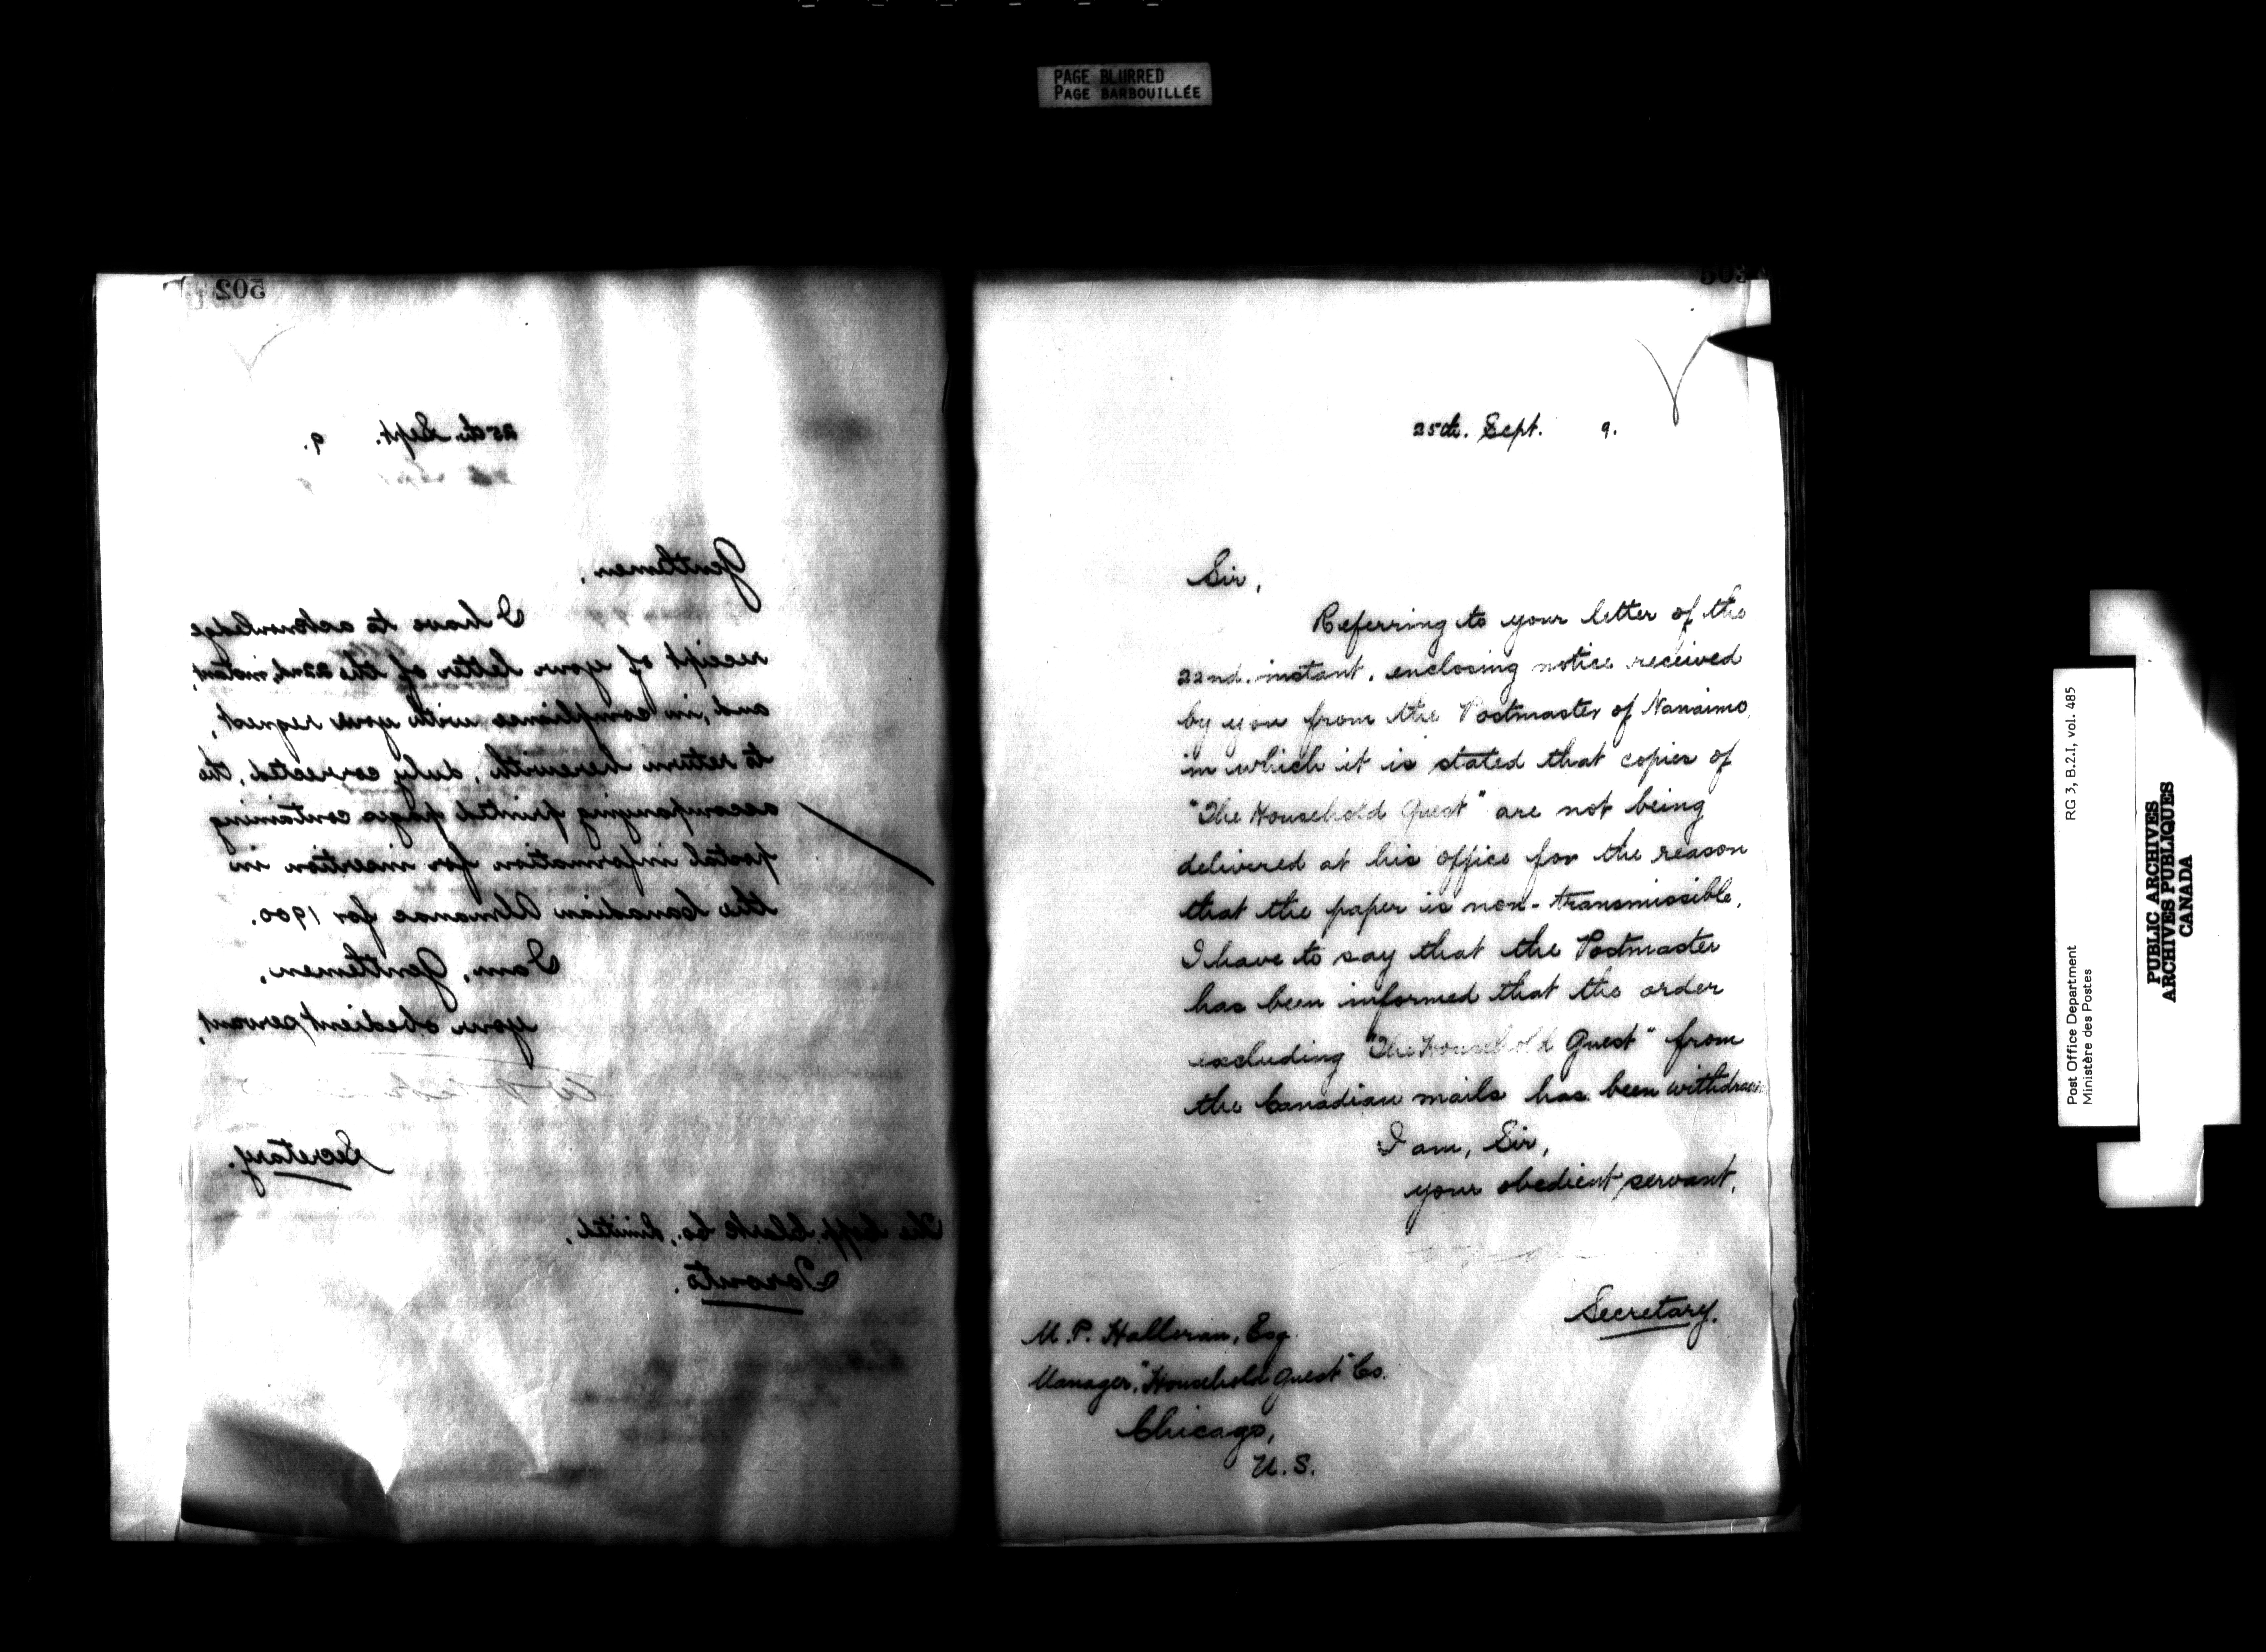 PAGE BLURRED
PAGE BARBOUILLÉE
502
25th. Sept. 9.
Gentlemen,
I have to acknowledge
receipt of your letter of the 22nd. instant,
and, in compliance with your request,
to return herewith, duly corrected, the
accompanying printed pages containing
postal information for insertion in
the Canadian Almanac for 1900.
I am, Gentlemen,
your obedient servant,
Secretary.
The Copp. Clark Co., Limited,
Toronto.
503
25th. Sept. 9.
Sir,
Referring to your letter of the
22nd. instant, enclosing notice received
by you from the Postmaster of Nanaimo,
in which it is stated that copies of
"The Household Guest" are not being
delivered at his office for the reason
that the paper is non-transmissible,
I have to say that the Postmaster
has been informed that the order
excluding "The Household Guest" from
the Canadian mails has been withdrawn
I am, Sir,
your obedient servant,
Secretary.
M. P. Halloran, Esq.
Manager, "Household Guest" Co.
Chicago,
U. S.
Post Office Department RG 3, B.2.I, vol. 485
Ministère des Postes
PUBLIC ARCHIVES
ARCHIVES PUBLIQUES
CANADA